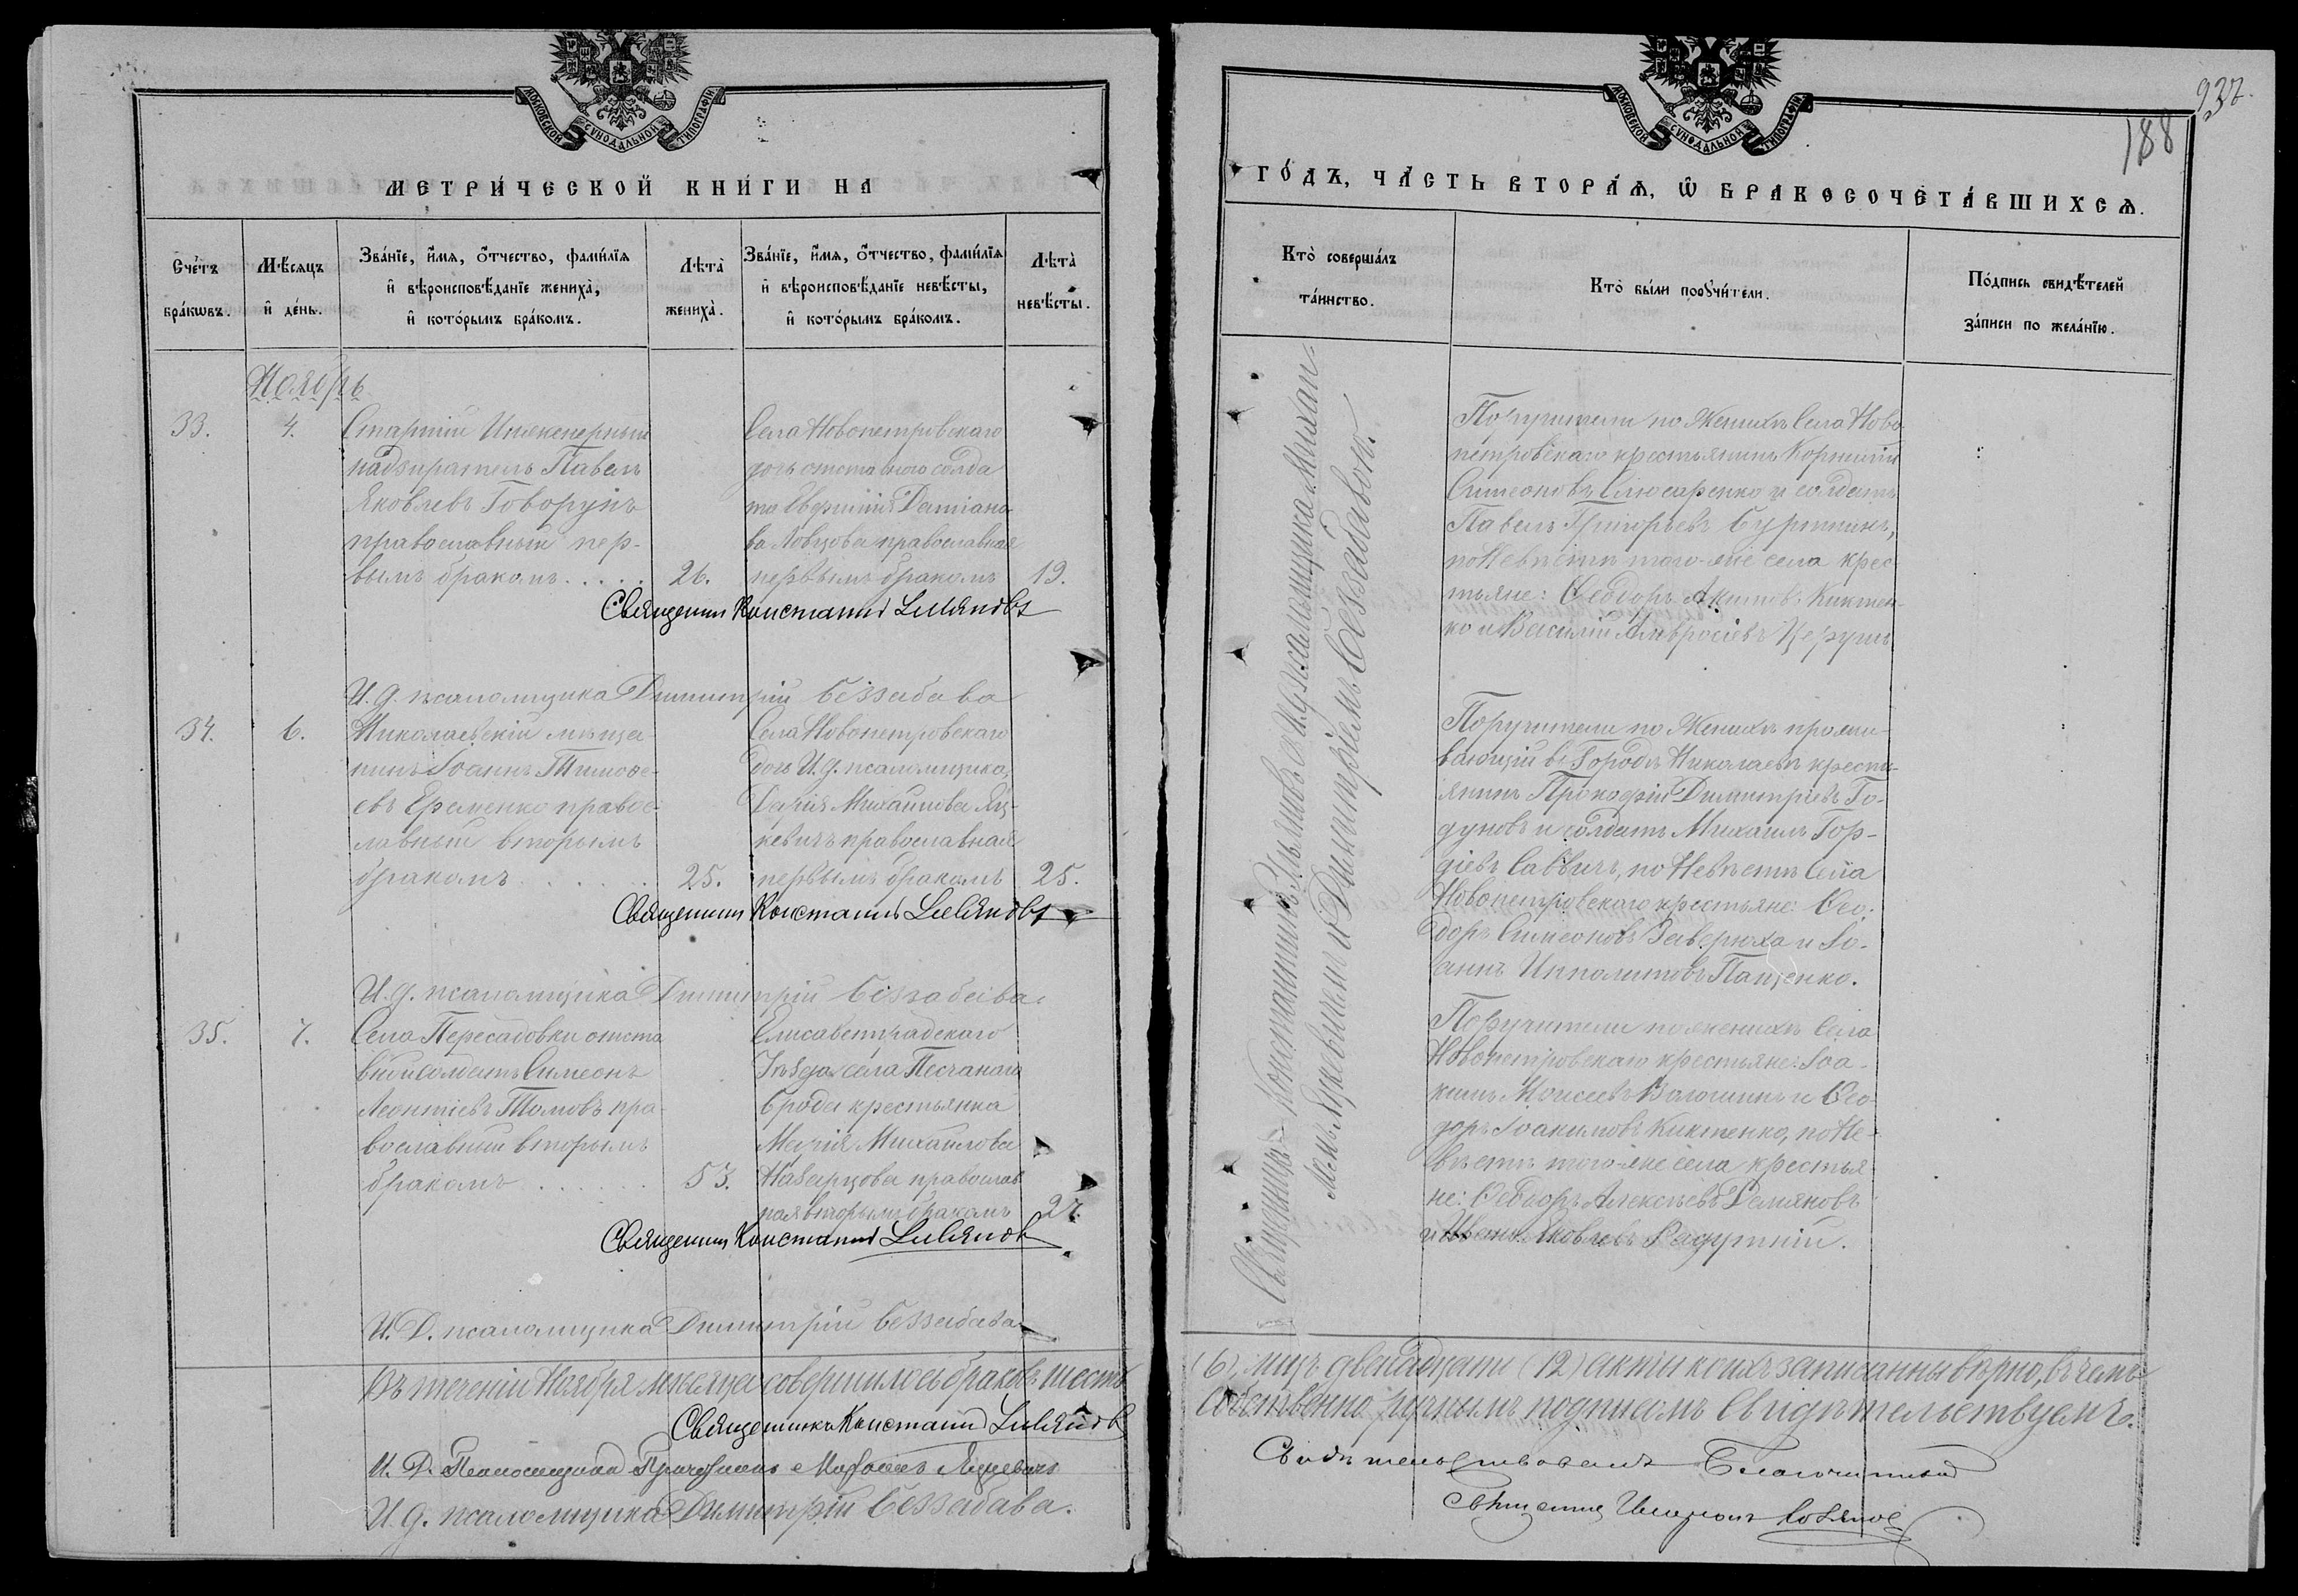 МОСКОВСКОЙ СУНОДАЛЬНОЙ ТИПОГРАФІИ
МЕТРИ́ЧЕСКОЙ КНИ́ГИ НА
Сче́тъ бра́кωвъ.
Мѣ́сяцъ и҆ де́нь.
Зва́нїе, и҆́мя, ѻ҆́тчество, фами́лїя
и҆ вѣроисповѣ́данїе жениха̀,
и҆ кото́рымъ бра́комъ.
Лѣта̀ жениха̀.
Зва́нїе, и҆́мя, ѻ҆́тчество, фами́лїя
и҆ вѣроисповѣ́данїе невѣ́сты,
и҆ кото́рымъ бра́комъ.
Лѣта̀ невѣ́сты.
Ноябрь
33.
4.
Старшій Инженерный
надзиратель Павелъ
Яковлевъ Говорунъ
православный пер-
вымъ бракомъ.....
26.
Села Новопетровскаго
дочь отставнаго солда
та Даміано
ва Ловцова православная
первымъ бракомъ
19.
Священник Констант
И. д. псаломщика Димитрій Беззабава
34.
6.
Николаевскій мѣща-
нинъ Іоаннъ Тимофе-
евъ Еременко правос-
лавный вторымъ
бракомъ......
25.
Села Новопетровскаго
дочь И. д. псаломщика,
Дарія Михаилова Яц-
кевичъ православная
первымъ бракомъ
25.
Священник Констант
И. д. псаломщика Димитрій Беззабава.
35.
7.
Села Пересадовки отста
вной солдатъ Симеонъ
Леонтіевъ Томовъ пра-
вославный вторымъ
бракомъ......
53.
Елисаветградскаго
Уѣзда села Песчанаго
Брода крестьянка
Марія Михаилова
православ
ная вторымъ бракомъ
27.
Священник Констант
И. Д. псаломщика Димитрій Беззабава
Въ теченіи Ноября мѣсяца совершилось браковъ шесть
Священникъ Констант
И. Д. Псаломщика Яцкевичъ
И. д. псаломщика Димитрій Беззабава.
937.
188
МОСКОВСКОЙ СУНОДАЛЬНОЙ ТИПОГРАФІИ
ГО́ДЪ, ЧА́СТЬ ВТОРА́Я, Ѡ҆ БРАКОСОЧЕТА́ВШИХСЯ.
Кто̀ соверша́лъ
та́инство.
Кто̀ бы́ли порꙋчи́тели.
По́дпись свидѣ́телей
за́писи по жела́нїю.
Священникъ Константинъ съ И. д. псаломщика Михаи-
ломъ Яцкевичемъ и Димитріемъ Беззабавою.
Поручители по Женихѣ Села Ново
петровскаго крестьянинъ Корнилій
Симеоновъ Слюсаренко и солдатъ
Павелъ Григорьевъ
по Невѣстѣ того-же села крес
тьяне: Ѳеодоръ Акимовъ Киктен-
ко и Василій Амвросіевъ
Поручители по Женихѣ прожи-
вающій въ Городѣ Николаевѣ крестья-
янинъ Прокофій Димитріевъ Го-
дуновъ и солдатъ Михаилъ Гор-
діевъ Саввичъ, по Невѣстѣ Села
Новопетровскаго крестьяне: Ѳео-
доръ Симеоновъ Заверюха и Іо-
аннъ Ипполитовъ Пащенко.
Поручители по женихѣ Села
Новопетровскаго крестьяне: Іоа-
кимъ Моисеевъ Волошинъ и Ѳео
доръ Іоакимовъ Киктенко, по Не-
вѣстѣ того-же села крестья-
не: Ѳеодоръ Алексѣевъ
и Иванъ Яковлевъ
(6), мущ. двенадцати (12) акты коихъ записанны вѣрно, въ чемъ
собственно ручнымъ подписомъ свидѣтельствуемъ.
Свидѣтельствовалъ Благочинный